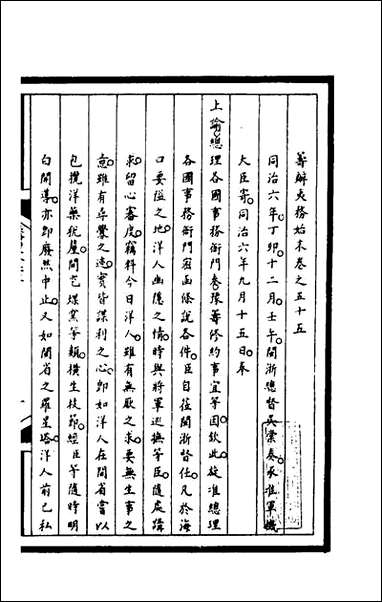 籌辦夷務始末卷之五十五
同治六年丁卯十二月壬午閩浙總督吳棠奏承准軍機
大臣寄同治六年九月十五日奉
上諭總理各國事務衙門奏豫籌修約事宜等因欽此旋准總理
各國事務衙門密函條說各件臣自莅閩浙督任凡於海
口要隘之地洋人幽隱之情時與將軍巡撫等臣隨處講
求留心審度竊料今日洋人雖有無厭之求要無生事之
意雖有尋釁之迹實皆謀利之心即如洋人在閩省嘗以
包攬洋藥挑屋開乞煤窯等類橫生枝節經臣等隨時明
白開導亦即廢然中止又如閩省之羅星塔洋人前已私